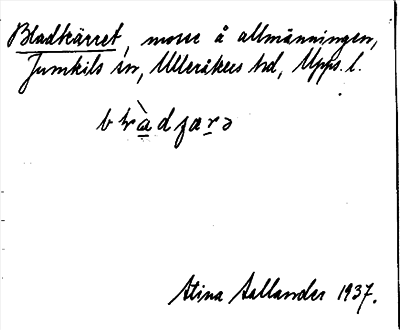 Bladkärret, mosse å allmänningen,
Jumkils sn, Ulleråkers hd, Upps. l.
Stina Sallander 1937.